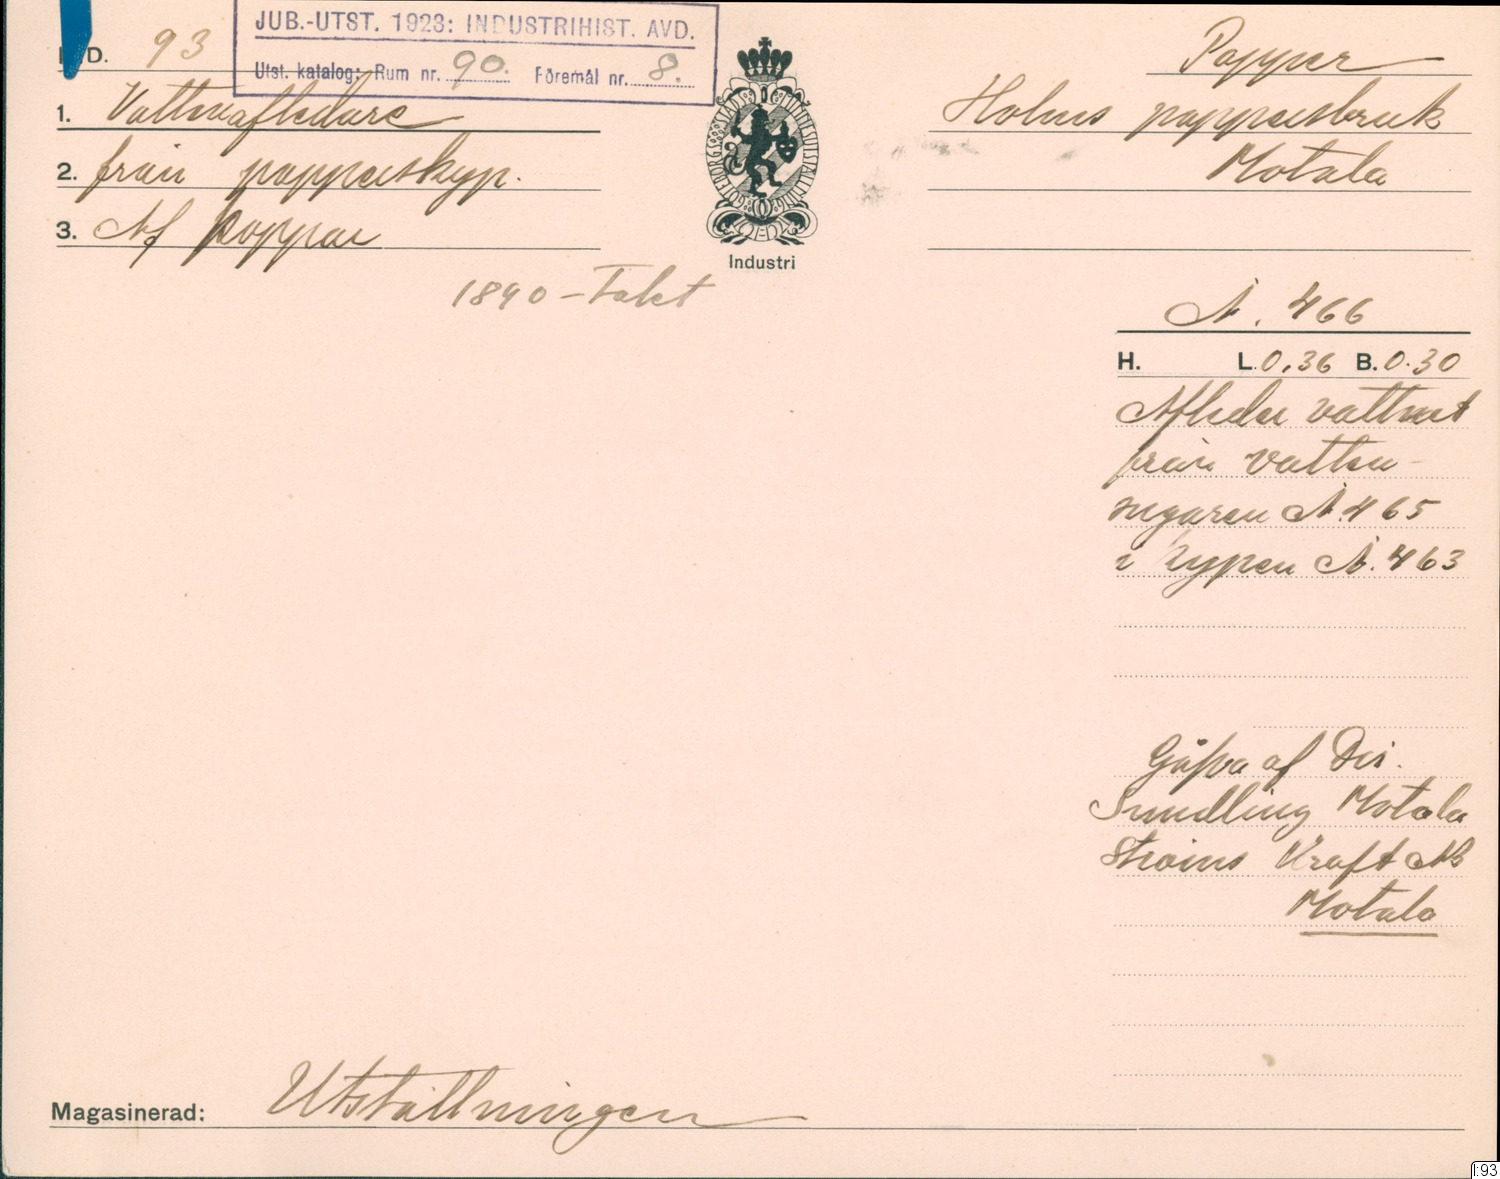 JUB.-UTST. 1923: INDUSTRIHIST. AVD.
Utst. katalog: Rum nr. 90. Föremål nr. 8.
D. 93
1. Vattenafledare
2. från papperskyp.
3. Af koppar
1890-Talet
GÖTEBORGS STADS MINNESUTSTÄLLNING
Industri
Papper
Holms pappersbruk
Motala
A. 466
H. L. 0,36 B. 0.30
Afleder vattnet
från vatten-
sugaren A. 465
i kypen A. 463
Gåfva af Dir.
Sundling Motala
Ströms Kraft AB
Motala
Magasinerad: Utställningen
I:93